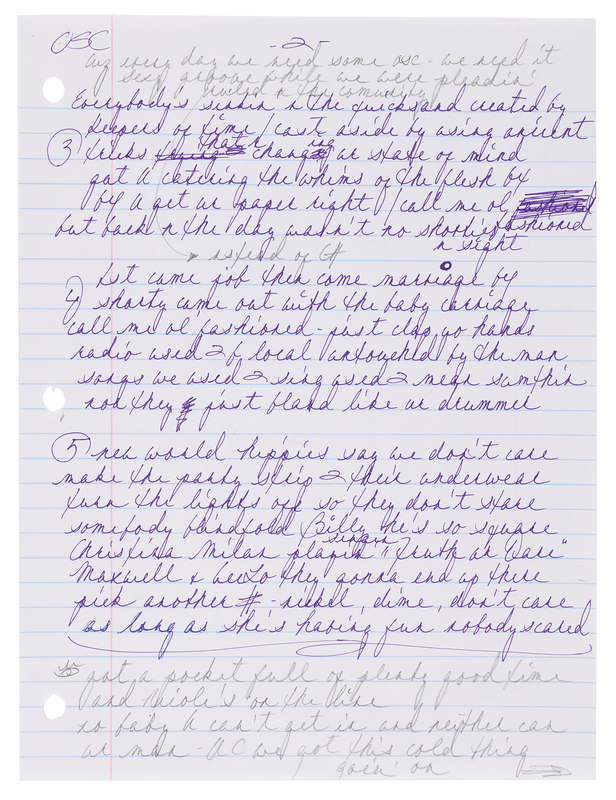 OSC - 2 -
every day we need some osc - we need it
sexy groove while we were pleadin'
unity n the community
Everybody's sinkin n the quicksand created by
keepers of time / cast aside by using ancient
3 tricks that r changing ur state of mind
got 2 catering the whims of the flesh by
by & get ur paper right / call me ol'
but back n the day wasn't no shorties fashioned
n sight
instead of
4) 1st came job then come marriage by
shorty came out with the baby carriage
call me ol' fashioned - just clap yo hands
radio used 2 b local untouched by the man
songs we used 2 sing used 2 mean sumthin
now they just bland like ur drummer
5 new world hippies say we don't care
make the party strip 2 their underwear
turn the lights off so they don't stare
somebody blindfold Billy he's so square
singin
Christina Milan playin' "Truth or Dare"
Maxwell & CeeLo they gonna end up there
pick another # - nickel, dime, don't care
as long as she's having fun nobody scared
got a pocket full of plenty good time
and Nicole's on the line
no baby U can't get in and neither can
ur man - AC we got this cold thing
goin' on